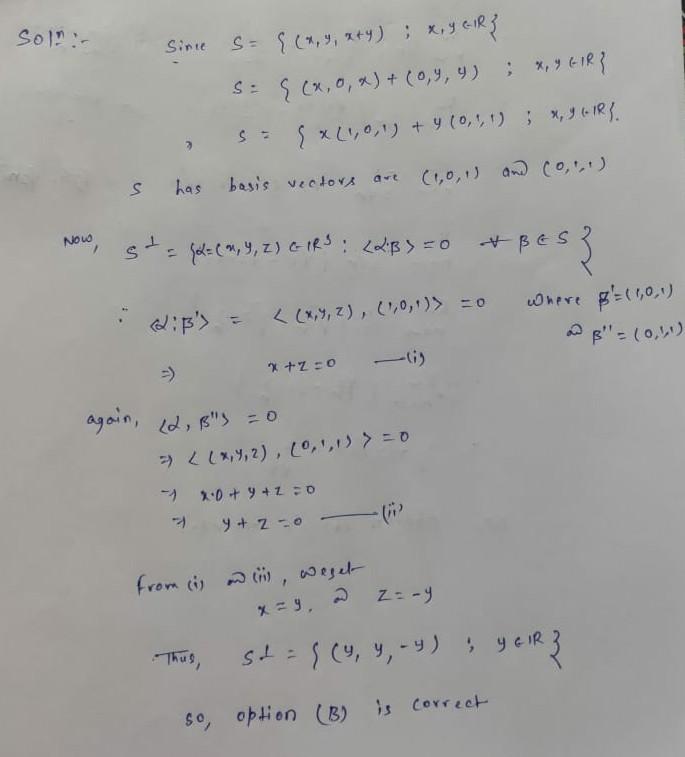 Solⁿ:- Since S = { (x, y, x+y) ; x, y ∈ IR}
S = { (x, 0, x) + (0, y, y) ; x, y ∈ IR}
, S = { x(1,0,1) + y(0,1,1) ; x, y ∈ IR}.
S has basis vectors are (1,0,1) and (0,1,1)
Now, S⊥ = {α=(x, y, z) ∈ IR³ : <α:β> = 0 ∀ β ∈ S}
∴ <α:β'> = <(x,y,z), (1,0,1)> = 0 where β'=(1,0,1)
& β'' = (0,1,1)
⇒ x+z=0 —(i)
again, <α, β''> = 0
⇒ <(x,y,z), (0,1,1)> = 0
⇒ x·0 + y + z = 0
⇒ y + z = 0 —(ii)
from (i) & (ii), we get
x = y, & z = -y
Thus, S⊥ = { (y, y, -y) ; y ∈ IR}
so, option (B) is correct